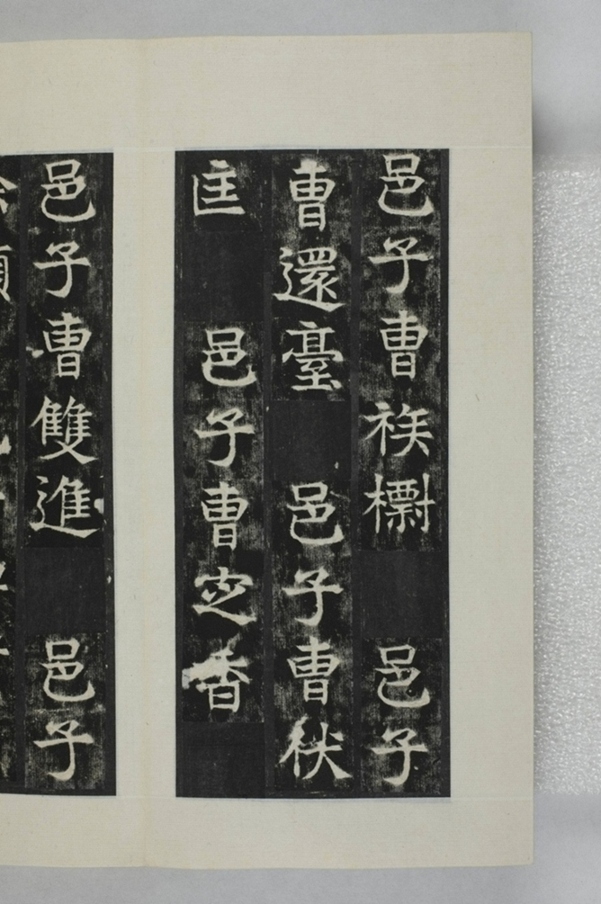 邑子曹 邑子
曹還臺 邑子曹
匡 邑子曹定香
邑子曹雙進 邑子